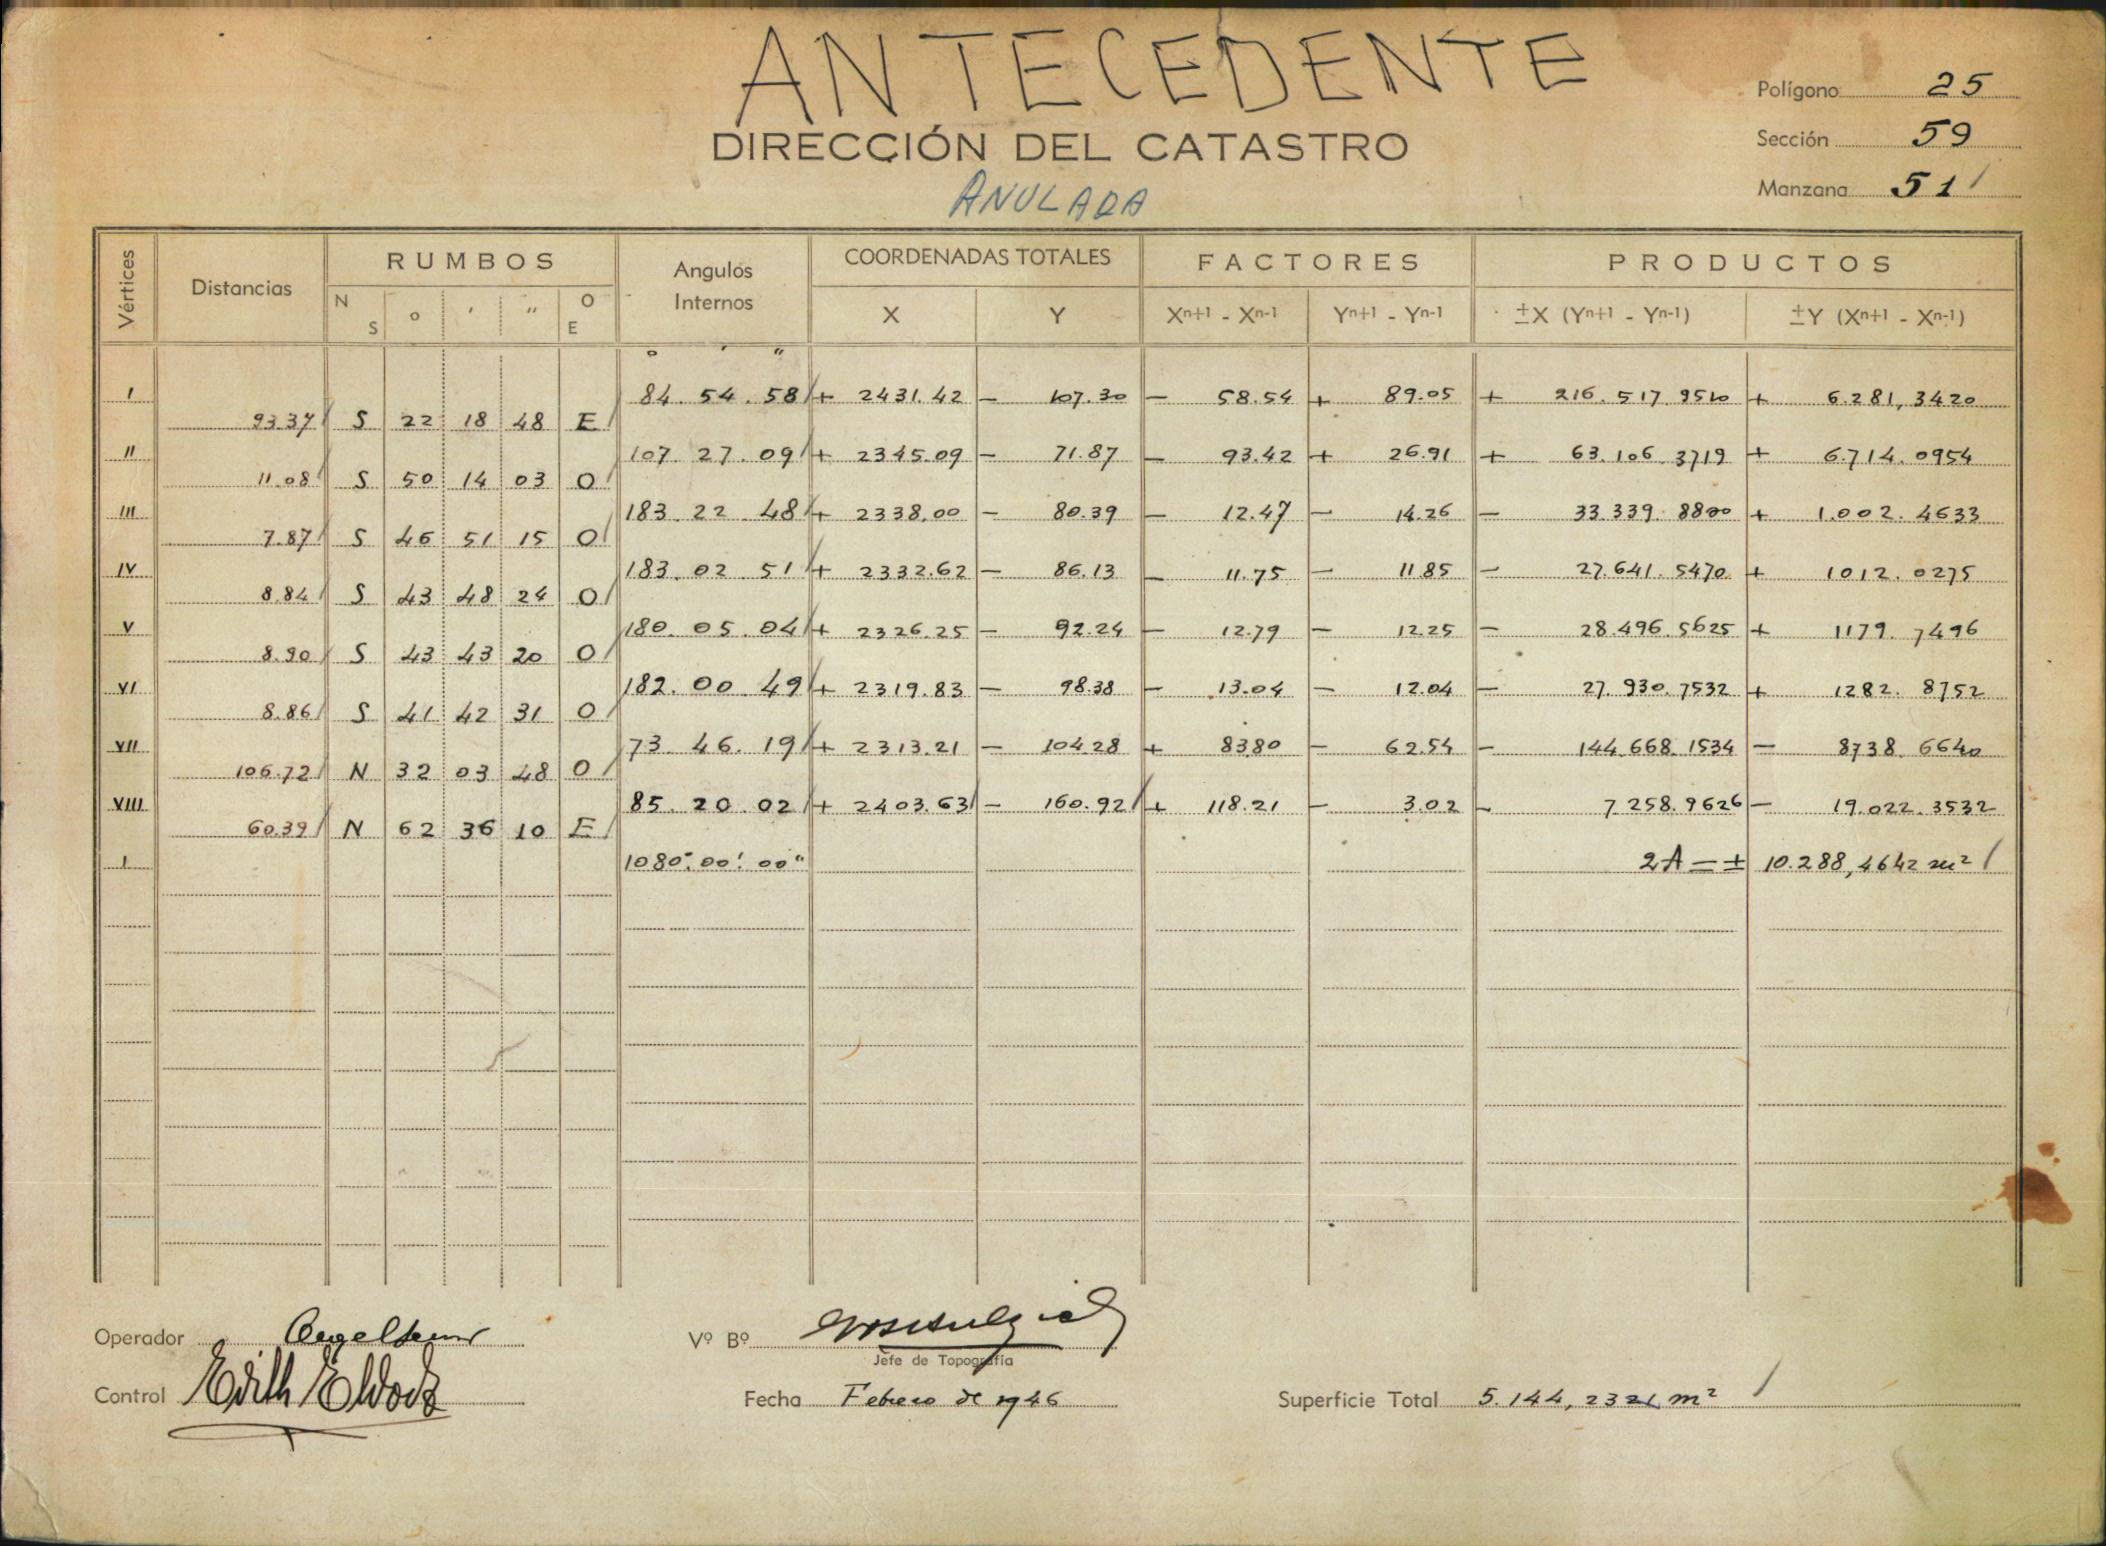 ANTECEDENTE
DIRECCIÓN DEL CATASTRO
ANULADA
Polígono 25
Sección 59
Manzana 51
Vértices Distancias RUMBOS Angulos Internos COORDENADAS TOTALES FACTORES PRODUCTOS
N S o ' " O E X Y Xn+1 - Xn-1 Yn+1 - Yn-1 ±X (Yn+1 - Yn-1) ±Y (Xn+1 - Xn-1)
o ' "
I 84. 54. 58 + 2431.42 - 107.30 - 58.54 + 89.05 + 216.517.9510 + 6.281,3420
93.37 S 22 18 48 E
II 107. 27. 09 + 2345.09 - 71.87 - 93.42 + 26.91 + 63.106.3719 + 6.714.0954
11.08 S 50 14 03 O
III 183. 22 48 + 2338.00 - 80.39 - 12.47 - 14.26 - 33.339.8800 + 1.002.4633
7.87 S 46 51 15 O
IV 183. 02 51 + 2332.62 - 86.13 - 11.75 - 11.85 - 27.641.5470 + 1012.0275
8.84 S 43 48 24 O
V 180. 05. 04 + 2326.25 - 92.24 - 12.79 - 12.25 - 28.496.5625 + 1179.7496
8.90 S 43 43 20 O
VI 182. 00 49 + 2319.83 - 98.38 - 13.04 - 12.04 - 27.930.7532 + 1282.8752
8.86 S 41 42 31 O
VII 73 46. 19 + 2313.21 - 104.28 + 83.80 - 62.54 - 144.668.1534 - 8738.6640
106.72 N 32 03 48 O
VIII 85. 20. 02 + 2403.63 - 160.92 + 118.21 - 3.02 - 7.258.9626 - 19.022.3532
60.39 N 62 36 10 E
I 1080° 00' 00" 2A = ± 10.288,4642 m²
Operador
Vº Bº
Jefe de Topografía
Control Edith
Fecha Febrero de 1946
Superficie Total 5.144,2321 m²